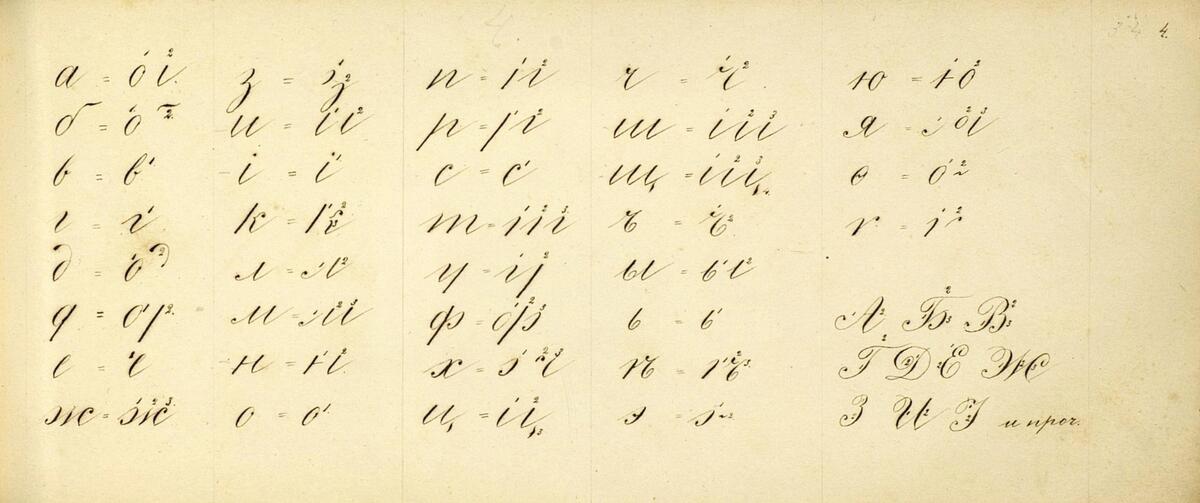 4.
а = а з = з п = п ч = ч ю = ю
б = б и = и р = р ш = ш я = я
в = в і = і с = с щ = щ ѳ = ѳ
г = г к = к т = т ъ = ъ ѵ = ѵ
д = д л = л у = у ы = ы
д = д м = м ф = ф ь = ь А Б В
е = е н = н х = х ѣ = ѣ Г Д Е Ж
ж = ж о = о ц = ц э = э З И І и проч.